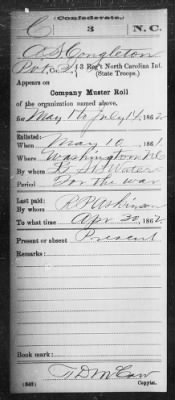 (Confederate.)
C 3 N.C.
A S Congleton
Pvt, Co. I, 3 Reg't North Carolina Inf.
(State Troops.)
Appears on
Company Muster Roll
of the organization named above,
for May 1 to July 14, 1862
Enlisted:
When May 10, 1861
Where Washington NC
By whom
Period For the war
Last paid:
By whom
To what time Apr 30, 1862
Present or absent Present
Remarks:
Book mark:
Copyist.